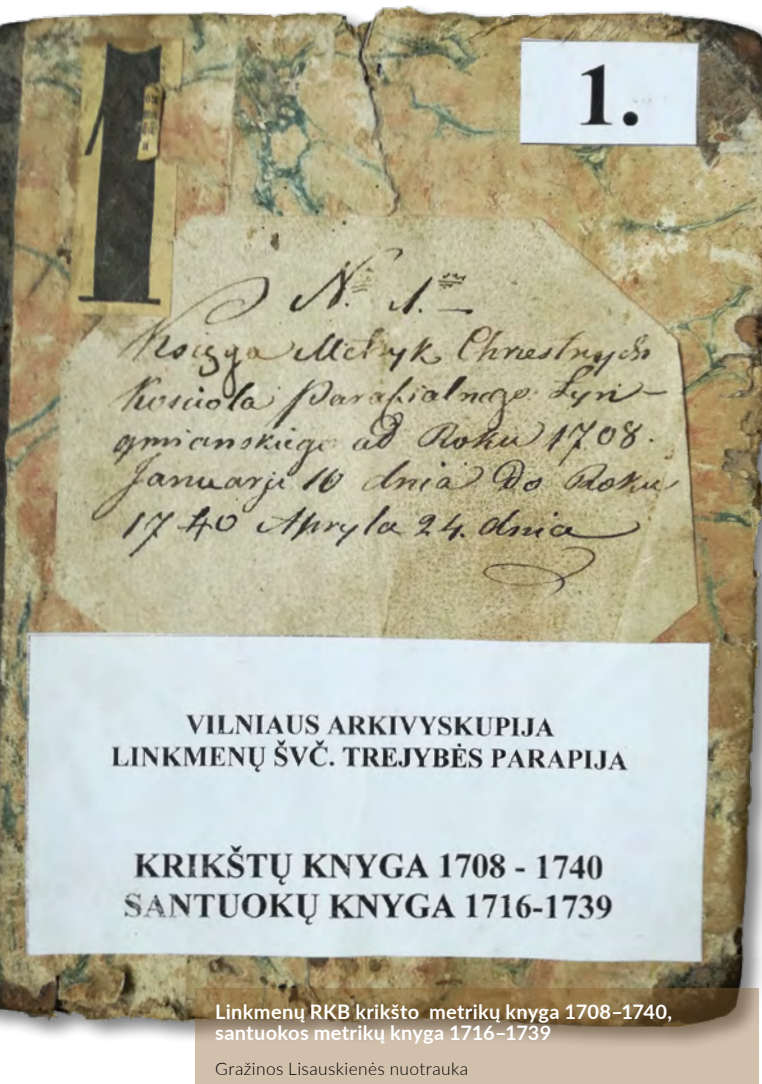 1.
N. 1.
Księga Metryk Chrzestnych
Kosciola Parafialnego Lyn-
gmianskiego od Roku 1708.
Januarji 10 dnia Do Roku
1740 Apryla 24. dnia
VILNIAUS ARKIVYSKUPIJA
LINKMENŲ ŠVČ. TREJYBĖS PARAPIJA
KRIKŠTŲ KNYGA 1708 - 1740
SANTUOKŲ KNYGA 1716-1739
Linkmenų RKB krikšto metrikų knyga 1708–1740,
santuokos metrikų knyga 1716–1739
Gražinos Lisauskienės nuotrauka